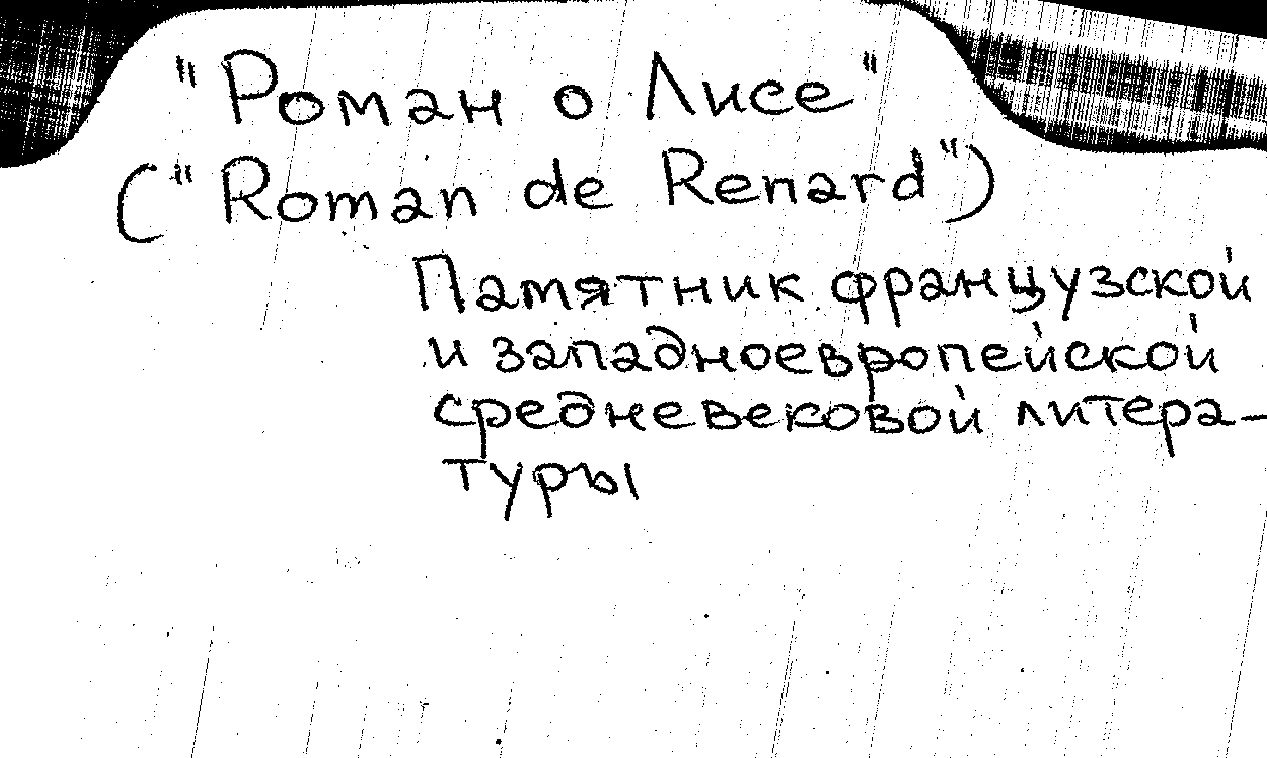 "Роман о Лисе"
("Roman de Renard")
Памятник французской
и западноевропейской
средневековой литера-
туры